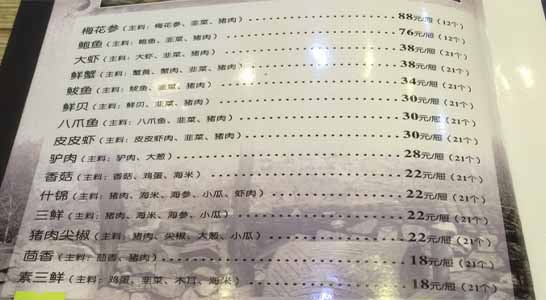 梅花参（主料：梅花参、韭菜、猪肉）88元/屉（12个）
鲍鱼（主料：鲍鱼、韭菜、猪肉）76元/屉（12个）
大虾（主料：大虾、韭菜、猪肉）38元/屉（21个）
鲜蟹（主料：蟹黄、蟹肉、韭菜、猪肉）38元/屉（21个）
鲅鱼（主料：鲅鱼、韭菜、猪肉）34元/屉（21个）
鲜贝（主料：鲜贝、韭菜、猪肉）30元/屉（21个）
八爪鱼（主料：八爪鱼、韭菜、猪肉）30元/屉（21个）
皮皮虾（主料：皮皮虾肉、韭菜、猪肉）30元/屉（21个）
驴肉（主料：驴肉、大葱）28元/屉（21个）
香菇（主料：香菇、鸡蛋、海米）22元/屉（21个）
什锦（主料：猪肉、海米、海参、小瓜、虾肉）22元/屉（21个）
三鲜（主料：猪肉、海米、海参、小瓜）22元/屉（21个）
猪肉尖椒（主料：猪肉、尖椒、大葱、小瓜）22元/屉（21个）
茴香（主料：茴香、猪肉）18元/屉（21个）
素三鲜（主料：鸡蛋、韭菜、木耳、海米）18元/屉（21个）